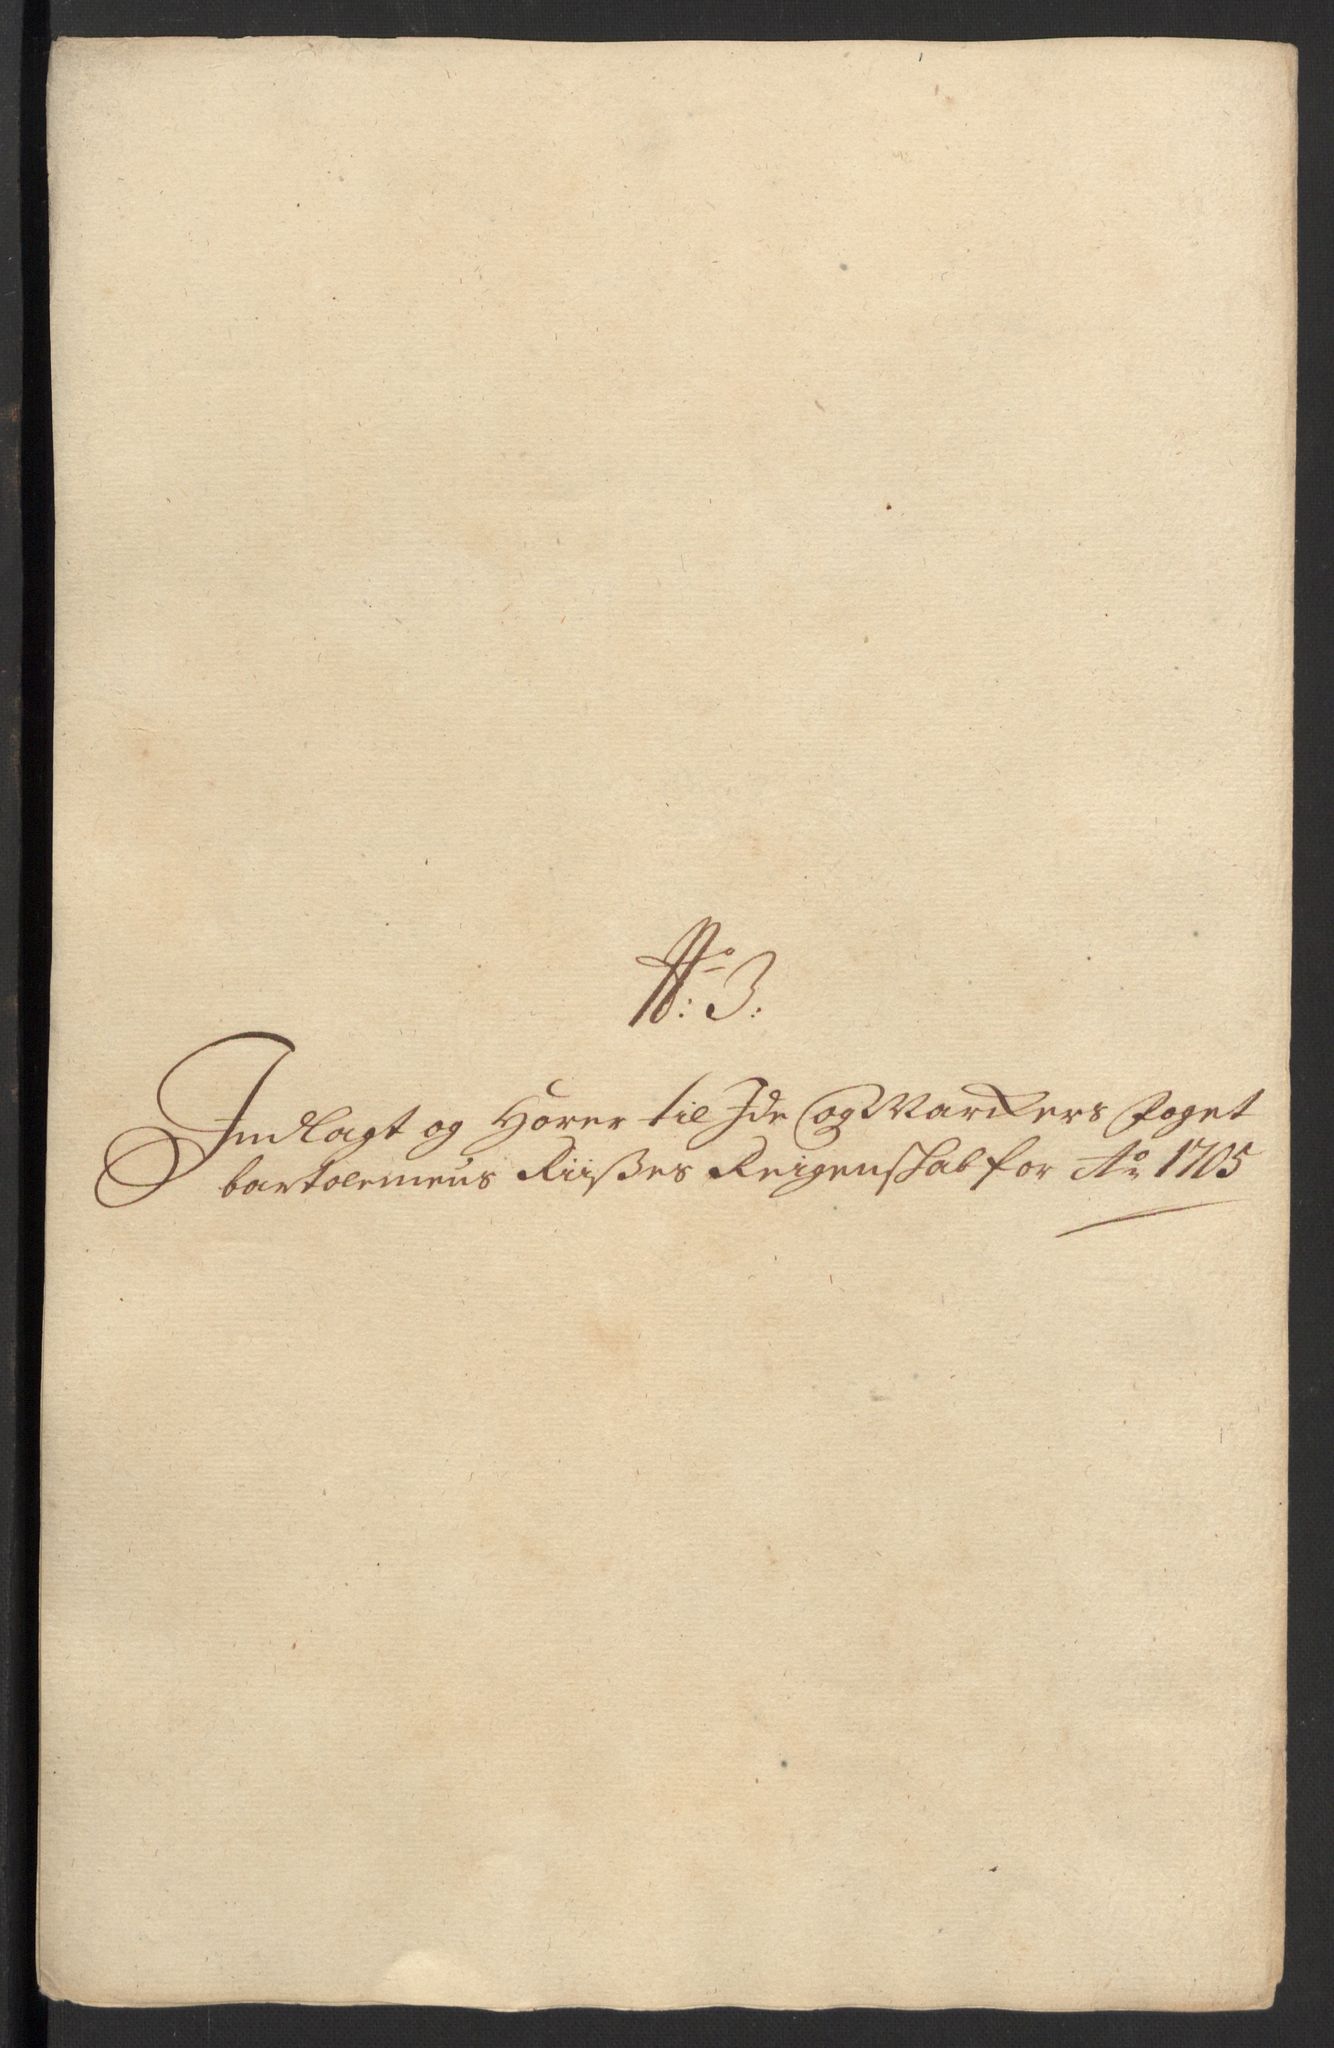 No: 3:
Indlagt og Hører til Ide og Marckers foget
bartolemeus Riisßes Reigenskab for Ao 1705